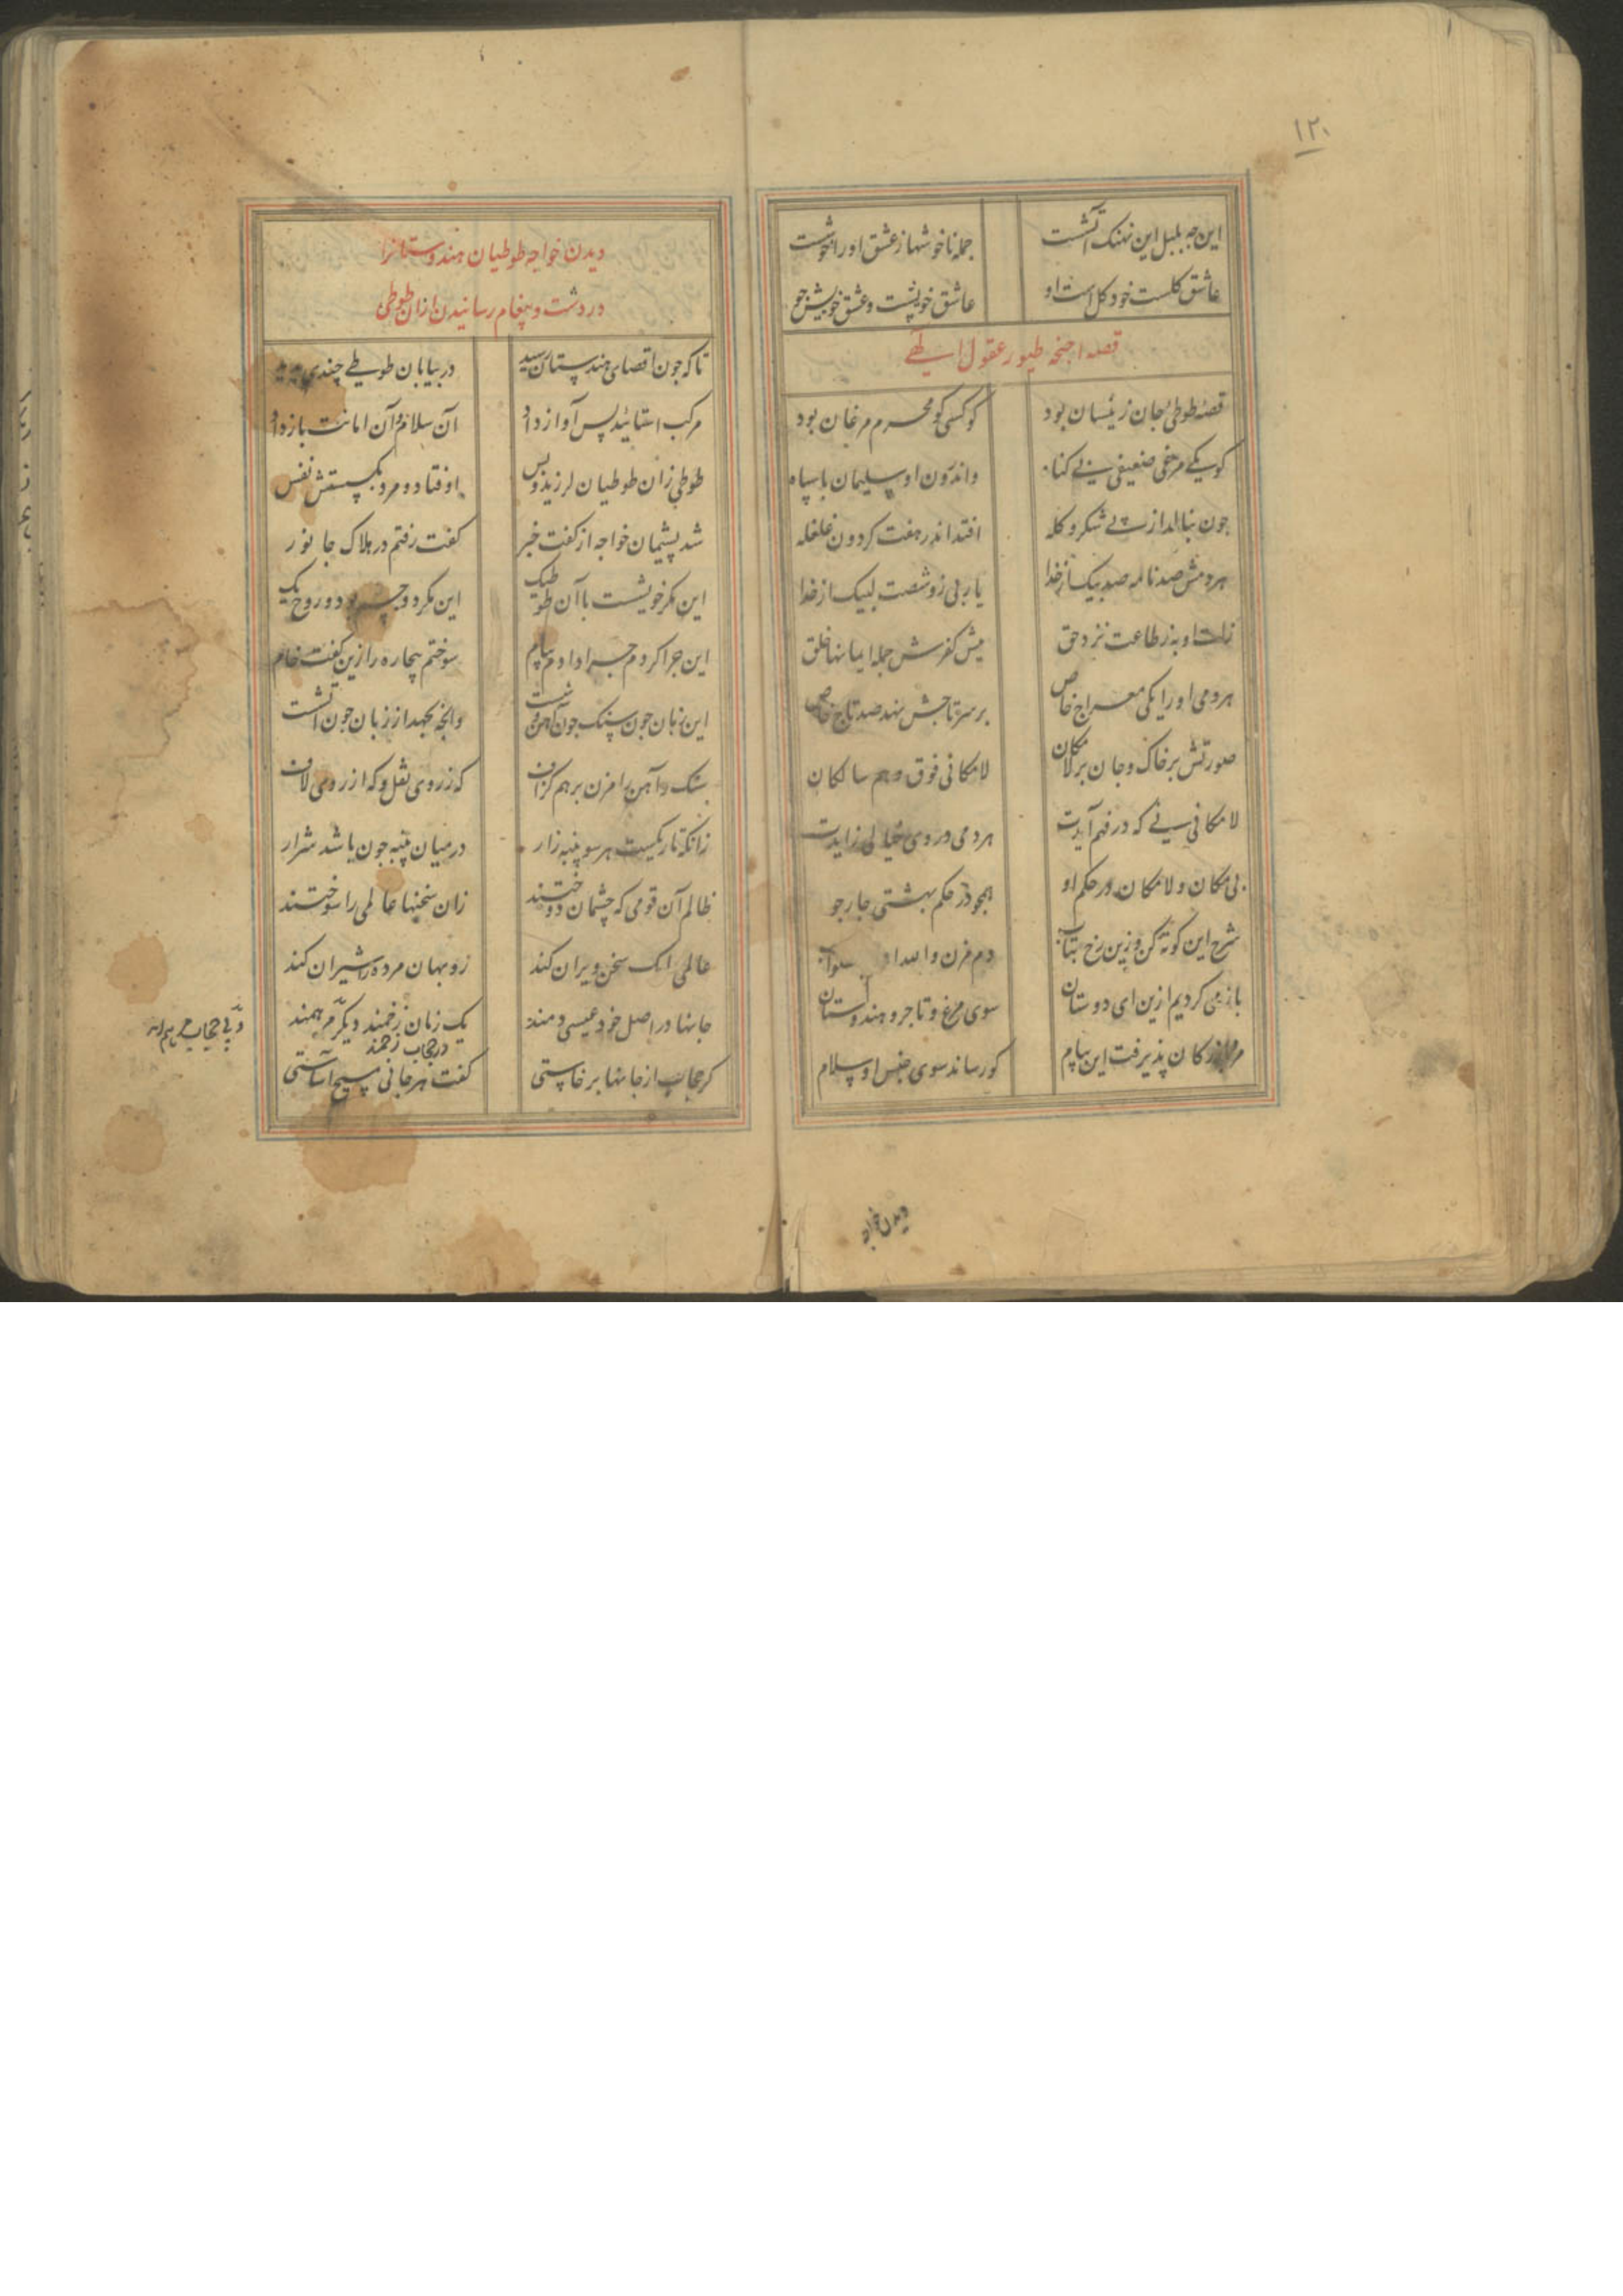 ۱۲۰
این جه بلبل این نهنک آتشت جمله ناخوشها ز عشق اورا خوشت
عاشق کلست خود کل است او عاشق خویشست و عشق خویش جو
قصه اجنحه طیور عقول الهی
قصه طوطی جان زینسان بود کو کسی کو محرم مرغان بود
کو یکی مرغی ضعیفی بی کناه واندرون او سلیمان با سپاه
جون بنالد زار بی شکر و کله افتد اندر هفت کردون غلغله
هر دمش صد نامه صد پیک از خدا یا ربی زو شصت لبیک از خدا
زلت او به ز طاعت نزد حق پیش کفرش جمله ایمانها خلق
هر دمی اورا یکی معراج خاص بر سر تاجش نهد صد تاج خاص
صورتش بر خاک و جان بر لامکان لامکانی فوق وهم سالکان
لامکانی نی که در فهم آیدت هر دمی در وی خیالی زایدت
بی مکان و لامکان در حکم او همجو در حکم بهشتی جار جو
شرح این کوته کن و زین رخ بتاب دم مزن والله
باز می کردیم ازین ای دوستان سوی مرغ و تاجر و هندوستان
مرد بازرکان پذیرفت این پیام کو رساند سوی جنس او سلام
دیدن خواجه
دیدن خواجه طوطیان هندوستانرا
در دشت و پیغام رسانیدن ازان طوطی
تا که جون اقصای هندستان رسید در بیابان طوطی چندی بدید
مرکب استانید پس آواز داد آن سلام و آن امانت باز داد
طوطی زان طوطیان لرزید و پس اوفتاد و مرد بکسستش نفس
شد پشیمان خواجه از کفت خبر کفت رفتم در هلاک جانور
این مکر خویشست با آن طوطیک این مکر دو جسم بود و روح یک
این جرا کردم جرا دادم پیام سوختم بیجاره را زین کفت خام
این زبان جون سنک جون آهن وشست وانجه بجهد از زبان جون آتشت
سنک و آهن را مزن بر هم کزاف که ز روی نقل و که از روی لاف
زانکه تاریکست هر سو پنبه زار در میان پنبه جون باشد شرار
ظالم آن قومی که چشمان دوختند زان سخنها عالمی را سوختند
عالمی را یک سخن ویران کند روبهان مرده را شیران کند
جانها در اصل خود عیسی دمند یک زمان زخمند دیکر مرهمند
در حجاب زخمند
و بی حجاب مرهم اند
کر حجاب از جانها بر خاستی کفت هر جانی مسیح آساستی